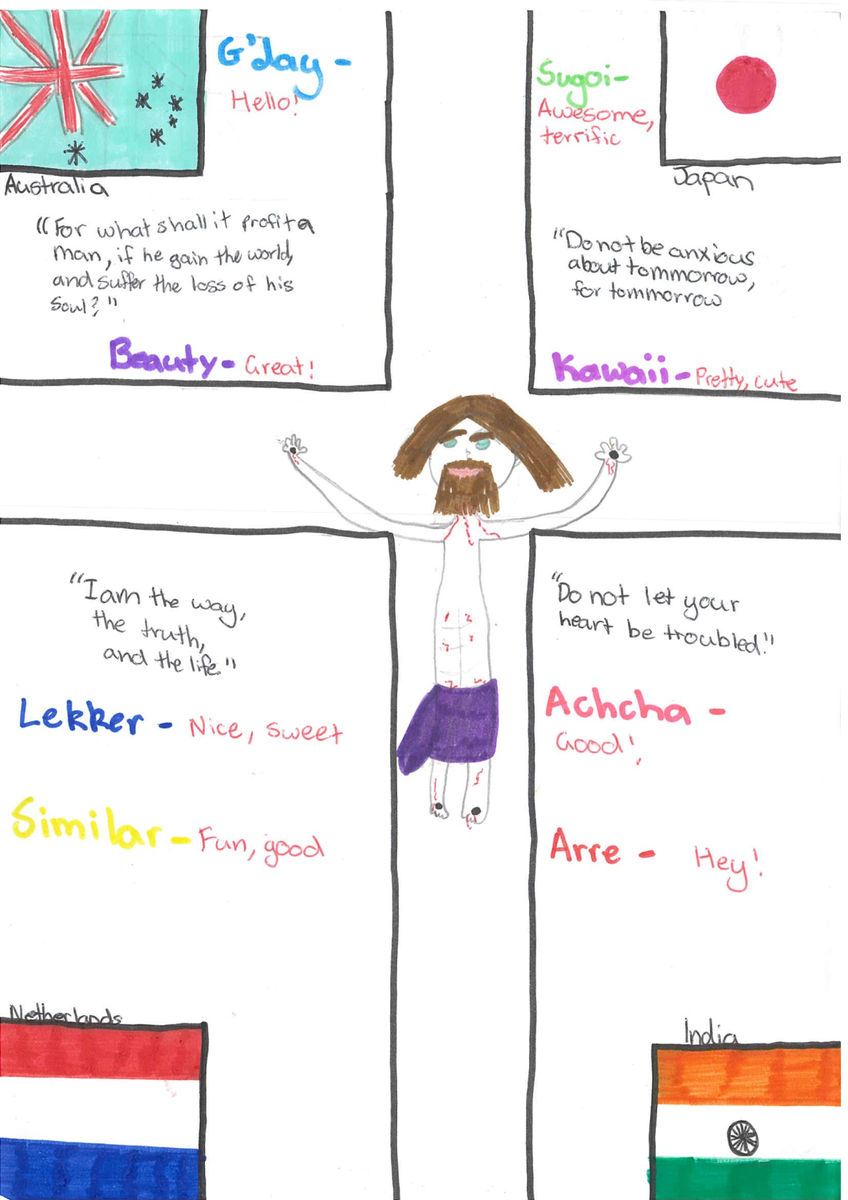 G'day -
Hello!
Australia
"For what shall it profit a
man, if he gain the world,
and suffer the loss of his
soul?"
Beauty - Great!
Sugoi-
Awesome,
terrific
Japan
"Do not be anxious
about tommorrow,
for tommorrow
Kawaii - Pretty, cute
"I am the way,
the truth,
and the life."
Lekker - Nice, sweet
Similar - Fun, good
Netherlands
"Do not let your
heart be troubled."
Achcha -
Good!
Arre - Hey!
India